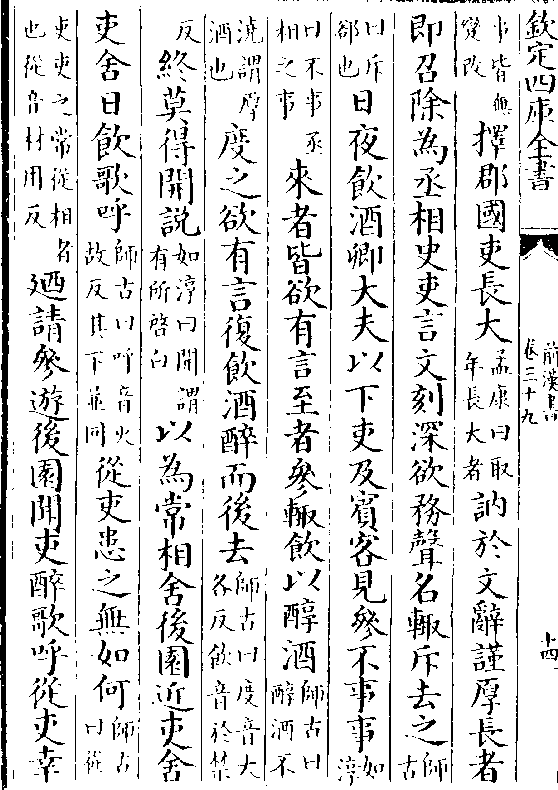 欽定四庫全書
前漢書
卷三十九
十四
事皆無變改擇郡國吏長大孟康曰取年長大者訥於文辭謹厚長者
即召除為丞相史吏言文刻深欲務聲名輙斥去之師古
曰斥郤也日夜飲酒卿大夫以下吏及賓客見參不事事如淳
曰不事丞相之事來者皆欲有言至者參輙飲以醇酒師古曰醇酒不
澆謂厚酒也度之欲有言復飲酒醉而後去師古曰度音大各反飲音於禁
反終莫得開說如淳曰開謂有所啓白以為常相舍後園近吏舍
吏舍日飲歌呼師古曰呼音火故反其下並同從吏患之無如何師古曰從
吏吏之常從相者也從音材用反廼請參遊後園聞吏醉歌呼從吏幸